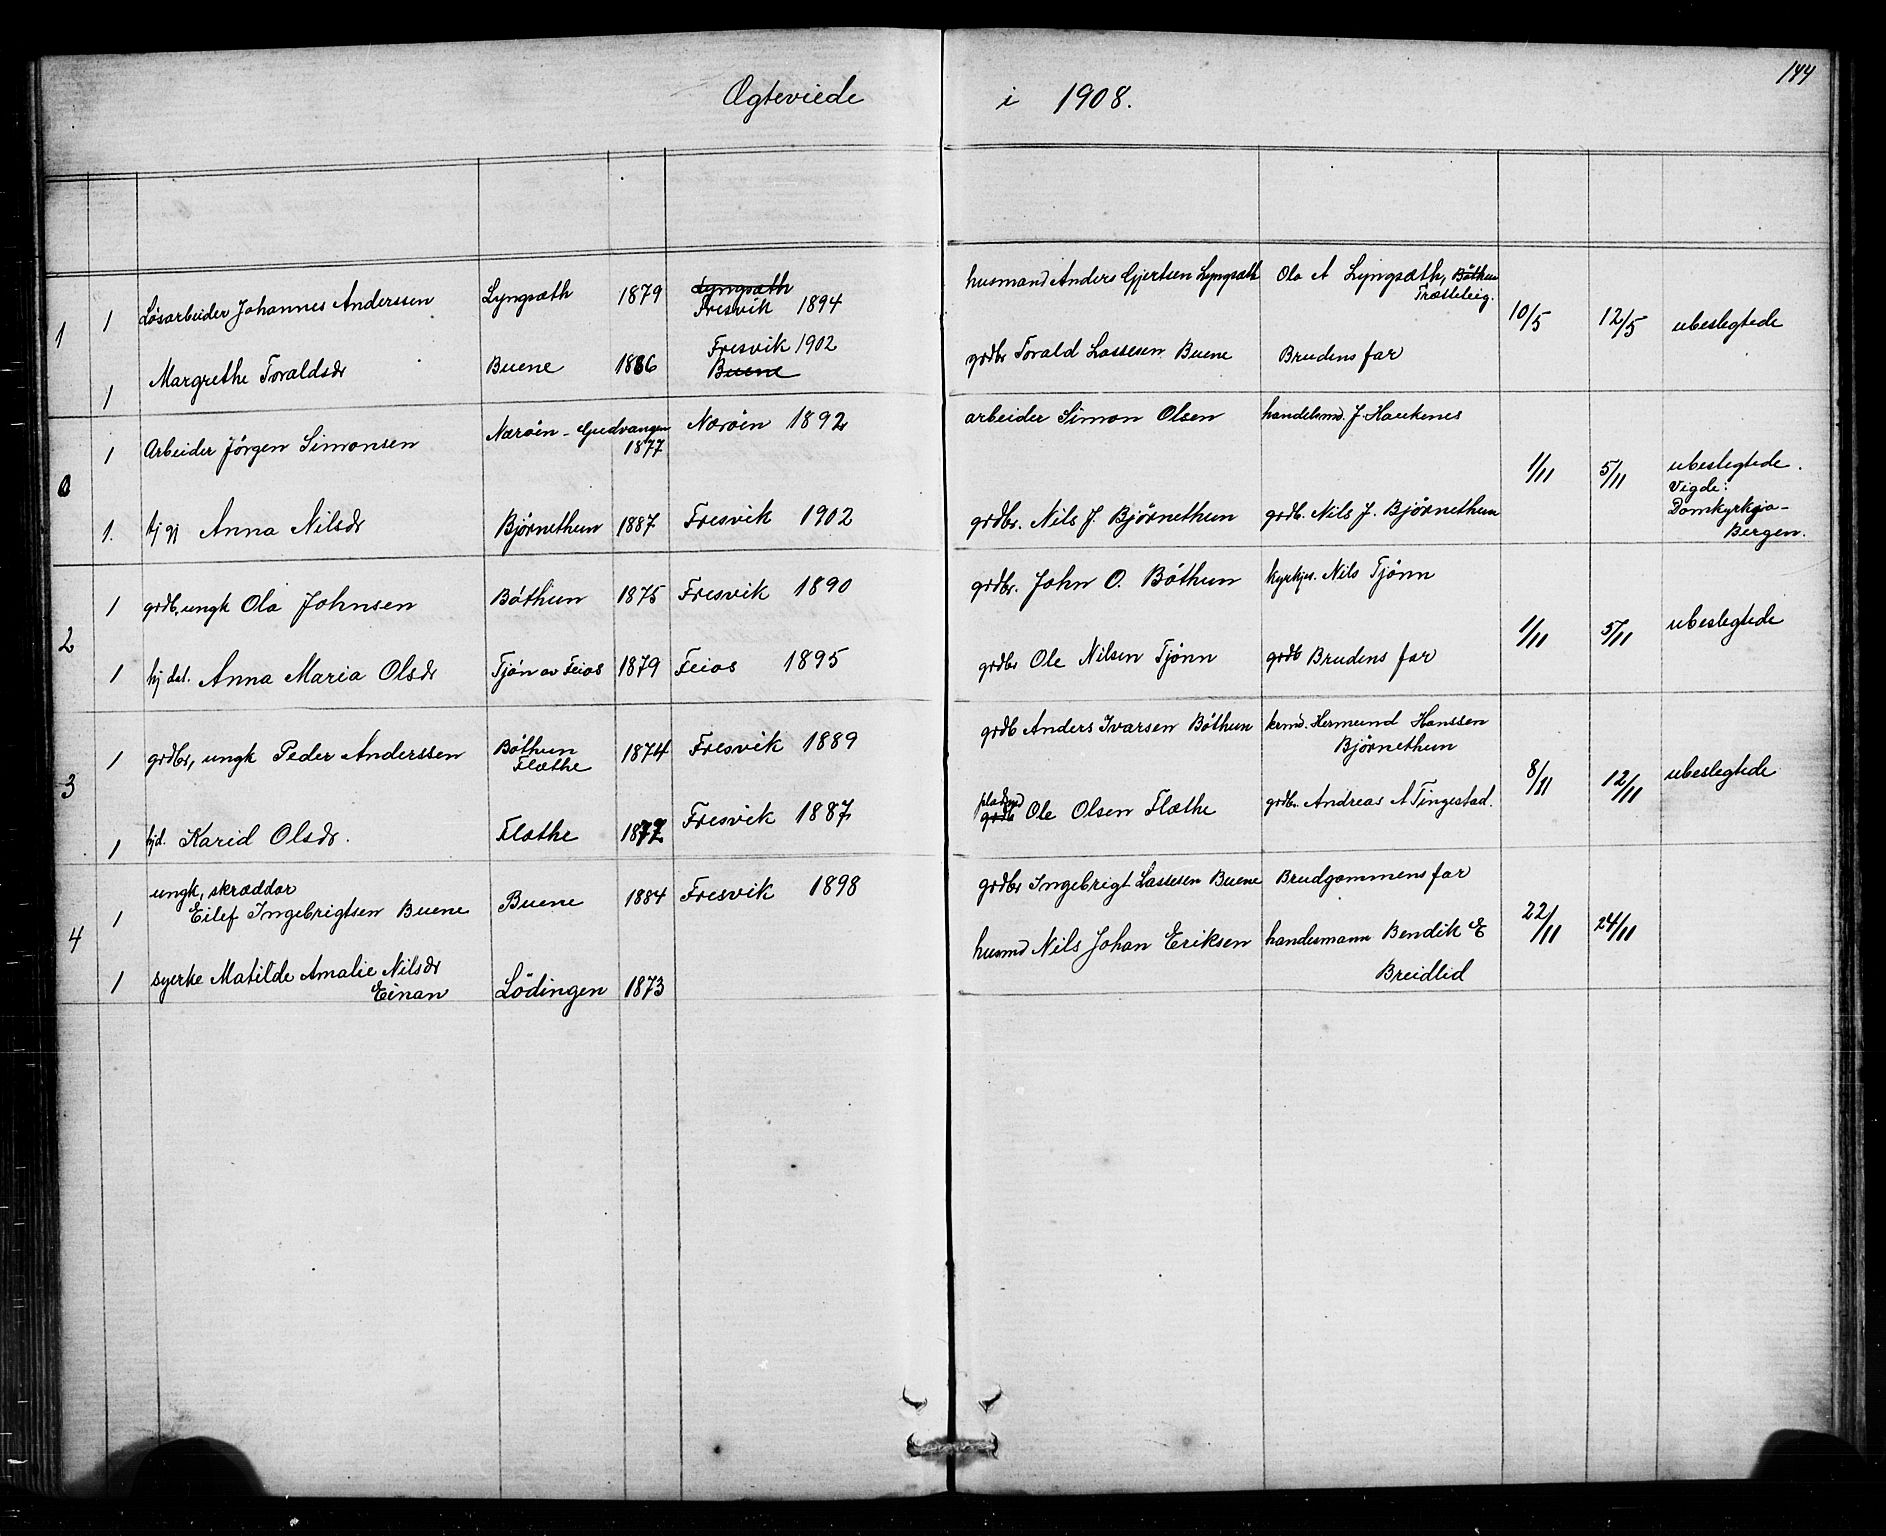 144
Ægteviede i 1908.
1 1 Løsarbeider Johannes Anderssen Lyngsæth 1879 Lyngsæth Fresvik 1894 husmand Anders Gjertsen Lyngsæth Ola A Lyngsæth, Bøthun Træsleieg. 10/5 12/5 ubeslegtede
1 Margrethe Toraldsdr Buene 1886 Fresvik 1902 Buene grdbr Torald Lassesen Buene Brudens far
0 1 Arbeider Jørgen Simonsen Nærøin - Gudvangen 1877 Nærøin 1892 arbeider Simon Olsen handelsmd. J. Haukenes 1/11 5/11 ubeslegtede.
Vigde:
Domkyrkja-
Bergen.
1. tj gj Anna Nilsdr Bjørnethun 1887 Fresvik 1902 grdbr. Nils J. Bjørnethun grdb. Nils J. Bjørnethun
2 1 grdb. ungk Ola Johnsen Bøthun 1875 Fresvik 1890 grdbr. John O. Bøthun kyrkjes. Nils Tjønn 1/11 5/11 ubeslegtede
1 hj dat. Anna Maria Olsdr Tjøn av Feios 1879 Feios 1895 grdbr Ole Nilsen Tjønn grdb Brudens far
3 1 grdbr, ungk Peder Anderssen Bøthun Flæthe 1874 Fresvik 1889 grdb Anders Ivarsen Bøthun krmd. Hermund Hanssen
Bjørnethun 8/11 12/11 ubeslegtede
1 hjd. Karid Olsdr. Flæthe 1872 Fresvik 1887 pladsmd grdb Ole Olsen Flæthe grdbr. Andreas A Tingestad.
4 1 ungk, skræddar
Eilef Ingebrigtsen Buene Buene 1884 Fresvik 1898 grdbr Ingebrigt Lassesen Buene Brudgommens far 22/11 24/11
1 syerke Matilde Amalie Nilsdr
Einan Lødingen 1873 husmd Nils Johan Eriksen handesmann Bendik E
Breidlid